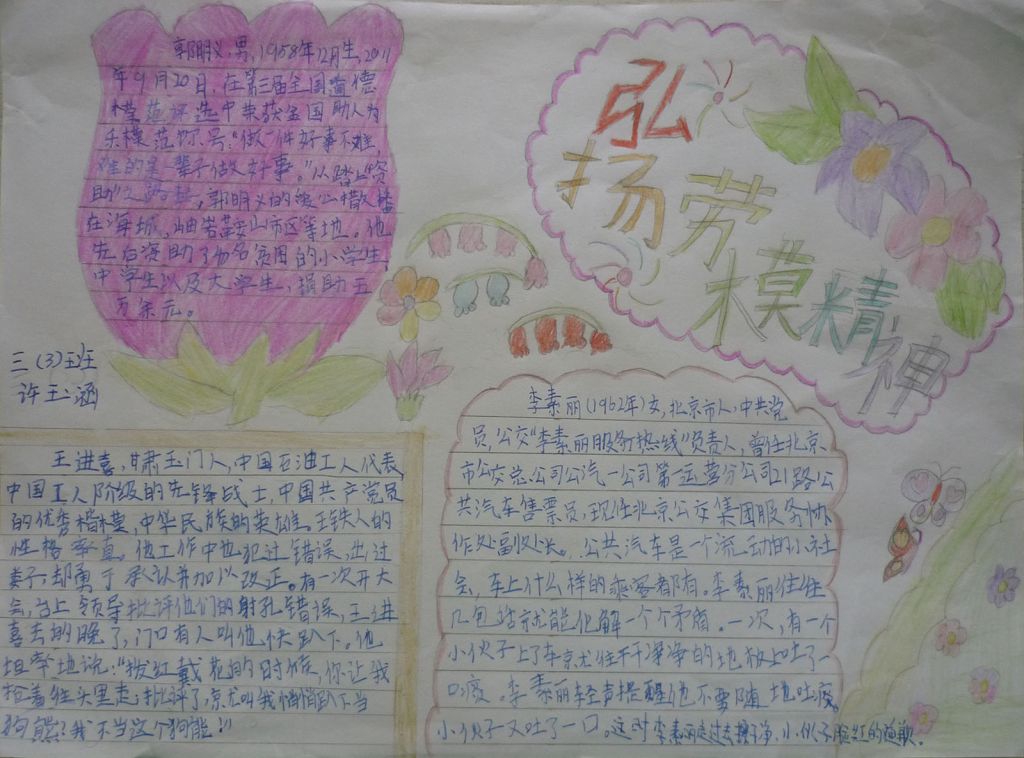 弘扬劳模精神
郭明义,男,1958年12月生,2011
年9月20日,在第三届全国道德
模范评选中荣获全国助人为
乐模范称号。“做一件好事不难
难的是一辈子做好事。”从踏上“资
助”之路,郭明义的爱心撒播
在海城、岫岩、鞍山市区等地。他
先后资助了 名贫困的小学生,
中学生以及大学生,捐助五
万余元。
三(3)班
许玉涵
王进喜,甘肃玉门人,中国石油工人代表,
中国工人阶级的先锋战士,中国共产党员
的优秀楷模,中华民族的英雄。王铁人的
性格率真。他工作中也犯过错误,出过
娄子,却勇于承认并加以改正。有一次开大
会,台上领导批评他们的射孔错误,王进
喜去的晚了,门口有人叫他快趴下。他
坦率地说:“披红戴花的时候,你让我
抢着往头里走;批评了,就叫我悄悄趴下当
狗熊?我不当这个狗熊!”
李素丽(1962年)女,北京市人,中共党
员,公交“李素丽服务热线”负责人,曾任北京
市公交总公司公汽一公司第一运营分公司21路公
共汽车售票员,现任北京公交集团服务协
作处副处长。公共汽车是一个流动的小社
会,车上什么样的乘客都有。李素丽往往
几句话就能化解一个个矛盾。一次,有一个
小伙子上了车就往干干净净的地板上吐了一
口痰。李素丽轻声提醒他不要随地吐痰。
小伙子又吐了一口。这时李素丽走过去擦净,小伙子脸红的道歉。